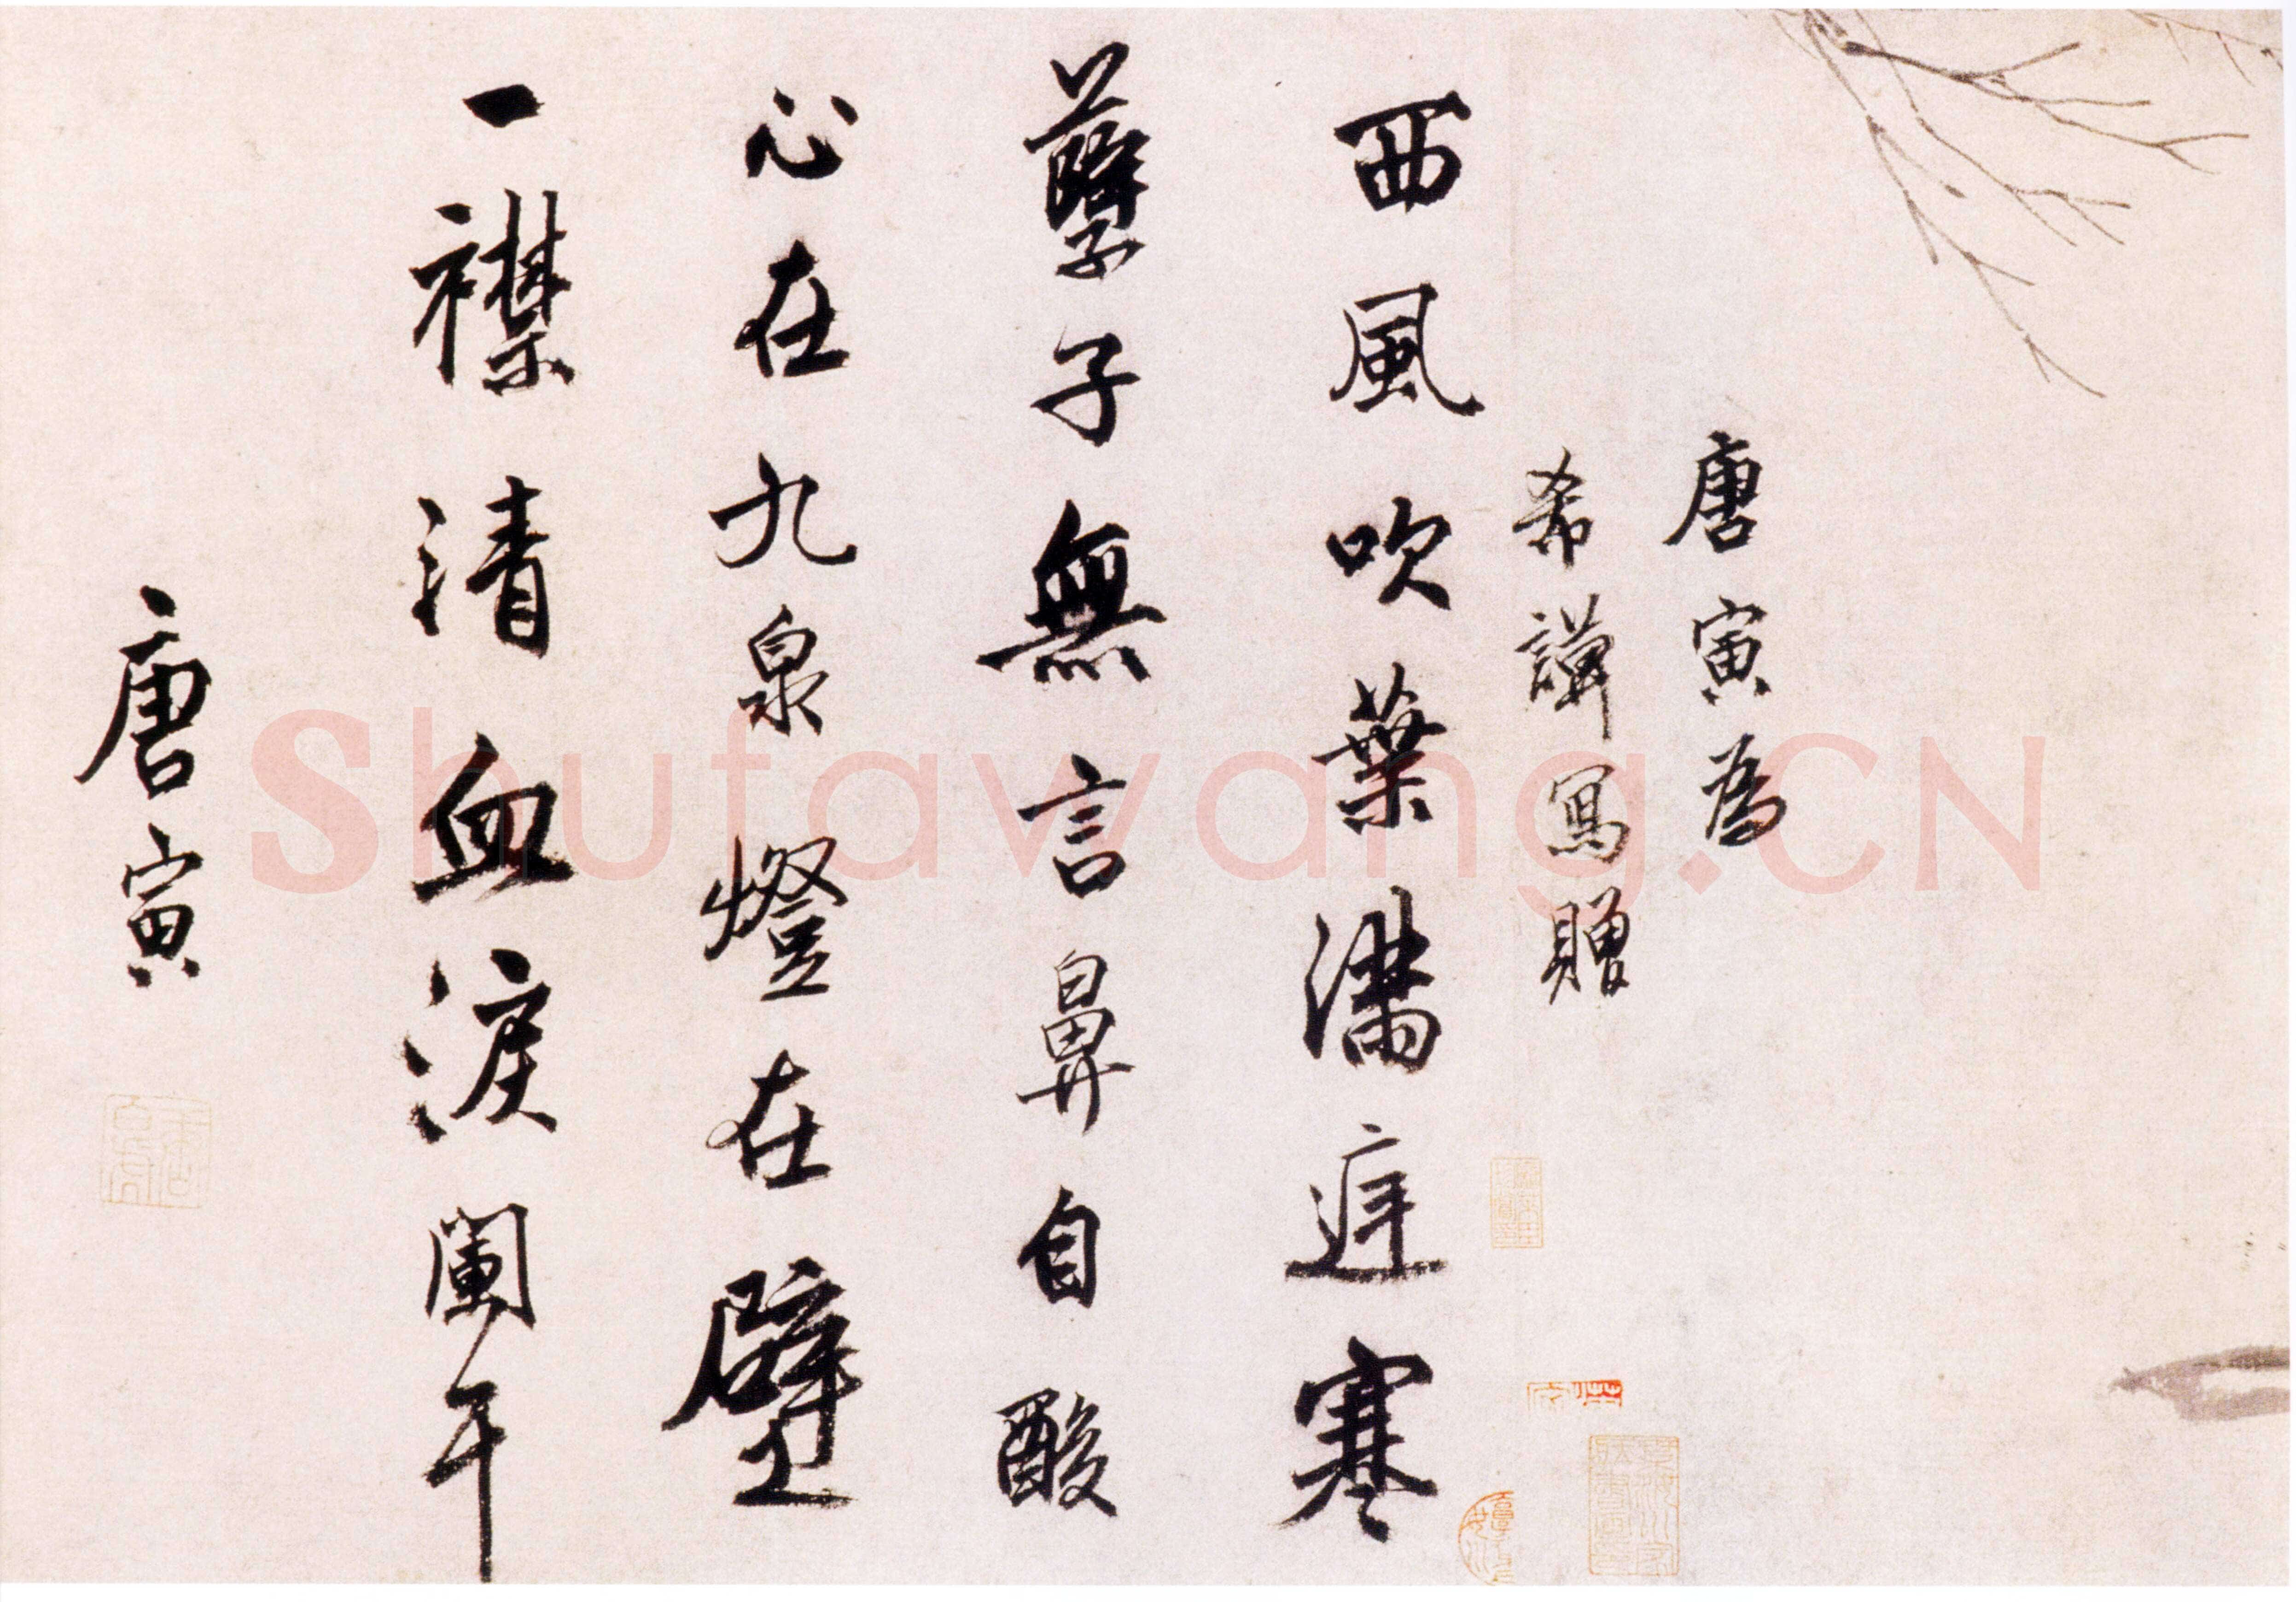 唐寅為
希謨寫贈
西風吹葉滿庭寒
孽子無言鼻自酸
心在九泉燈在壁
一襟清血淚闌干
唐寅
Shufawang.CN